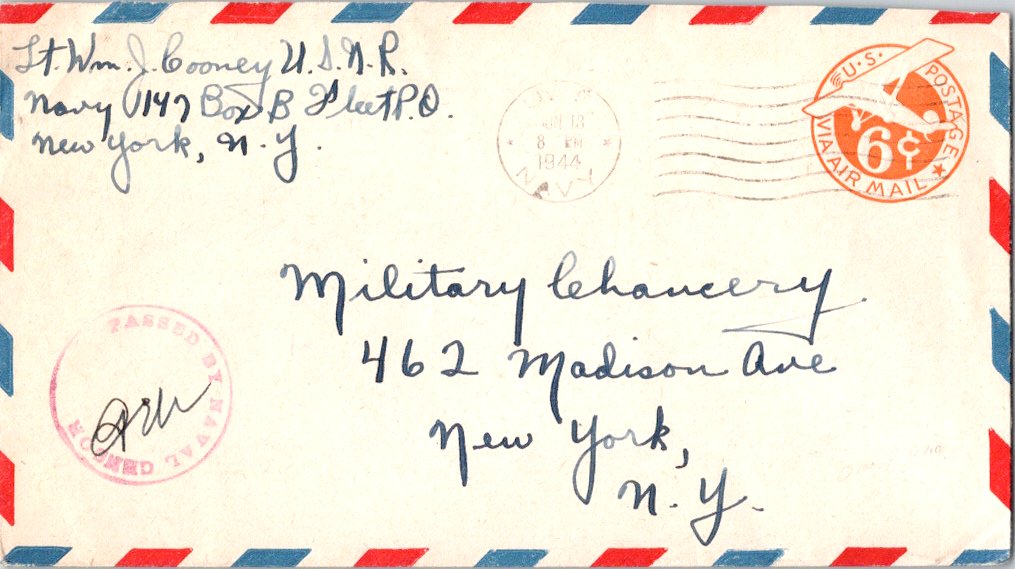 Lt. Wm. J. Cooney U.S.N.R.
Navy 1147 Box B Fleet P.O.
New York, N.Y.
8 PM
1944
NAVY
U.S. POSTAGE
6¢
VIA AIR MAIL
Military Chancery
462 Madison Ave
New York,
N.Y.
PASSED BY NAVAL CENSOR